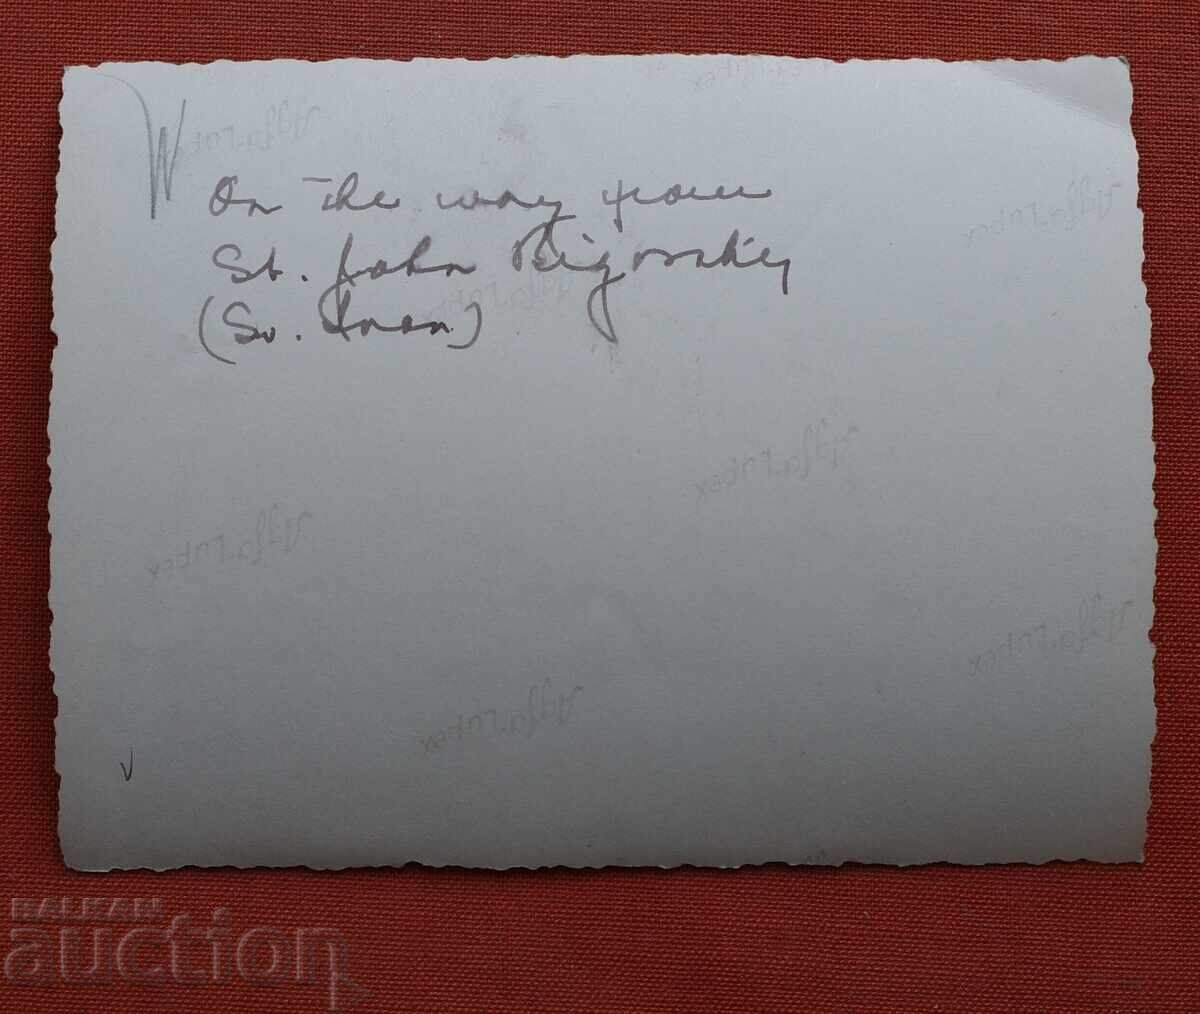 W
On the way from
St. John Bigorsky
(Sv. Ivan)
Agfa-Lupex
Agfa-Lupex
Agfa-Lupex
Agfa-Lupex
Agfa-Lupex
Agfa-Lupex
BALKAN
auction